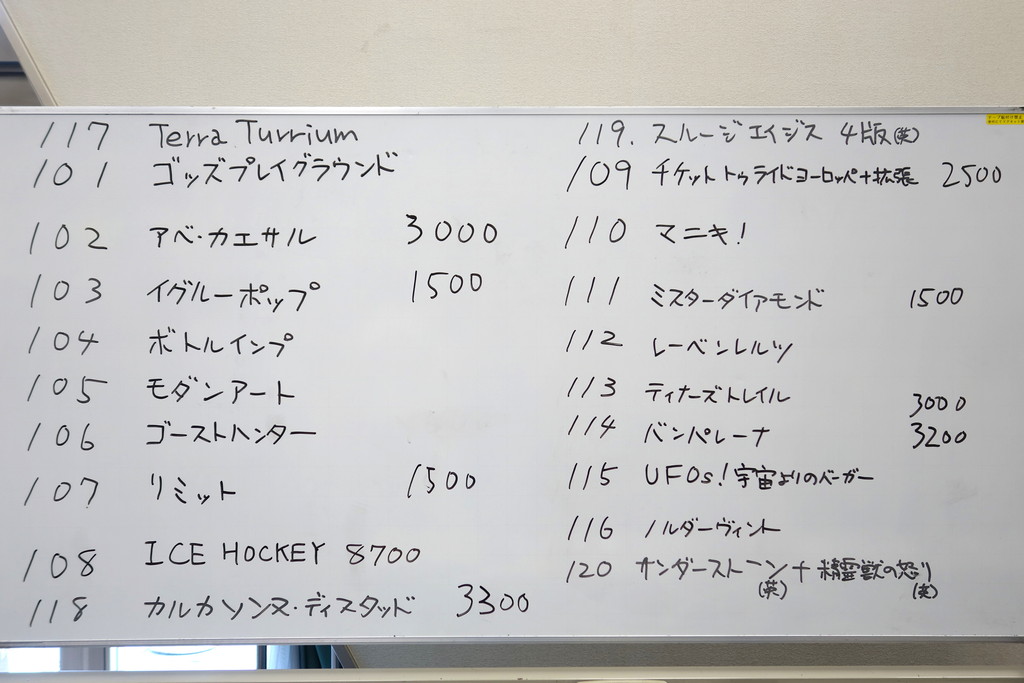 117 Terra Turrium
101 ゴッズプレイグラウンド
102 アベ・カエサル 3000
103 イグルーポップ 1500
104 ボトルインプ
105 モダンアート
106 ゴーストハンター
107 リミット 1500
108 ICE HOCKEY 8700
118 カルカソンヌ・ディスタッド 3300
119. スルージエイジス 4版(英)
109 チケットトゥライドヨーロッパ+拡張 2500
110 マニキ!
111 ミスターダイアモンド 1500
112 レーベンレルツ
113 ティナーズトレイル 3000
114 バンパレーナ 3200
115 UFOs!宇宙よりのバーガー
116 ノルダーヴィント
120 サンダーストーン+精霊獣の怒り
(英) (英)